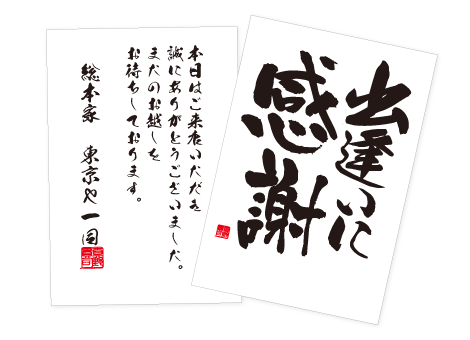 本日はご来店いただき
誠にありがとうございました。
またのお越しを
お待ちしております。
総本家 東京や一同
出逢いに
感謝